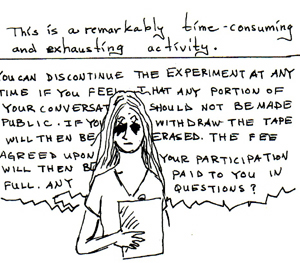 This is a remarkably time-consuming
and exhausting activity.
YOU CAN DISCONTINUE THE EXPERIMENT AT ANY
TIME IF YOU FEEL THAT ANY PORTION OF
YOUR CONVERSAT SHOULD NOT BE MADE
PUBLIC. IF YOU WITHDRAW THE TAPE
WILL THEN BE ERASED. THE FEE
AGREED UPON YOUR PARTICIPATION
WILL THEN BE PAID TO YOU IN
FULL. ANY QUESTIONS?